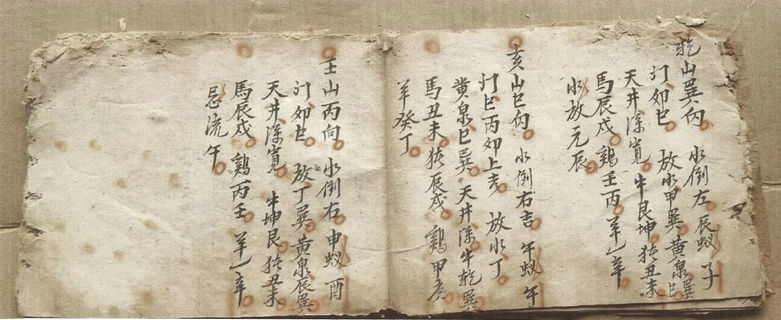 乾山巽向 水倒左 辰蚁子
门卯巳 放水甲巽 黄泉巳
天井深寬 牛艮坤 猪丑未
馬辰戍 鷄壬丙 羊乙辛
水放元辰
亥山巳向 水倒右吉 午蚁午
门巳丙卯上吉 放水丁
黄泉巳巽 天井深 牛乾巽
馬丑未 猪辰戍 鷄甲庚
羊癸丁
壬山丙向 水倒右 申蚁酉
门卯巳 放丁巽 黄泉辰巽
天井深寬 牛坤艮 猪丑未
馬辰戍 鷄丙壬 羊乙辛
忌流午